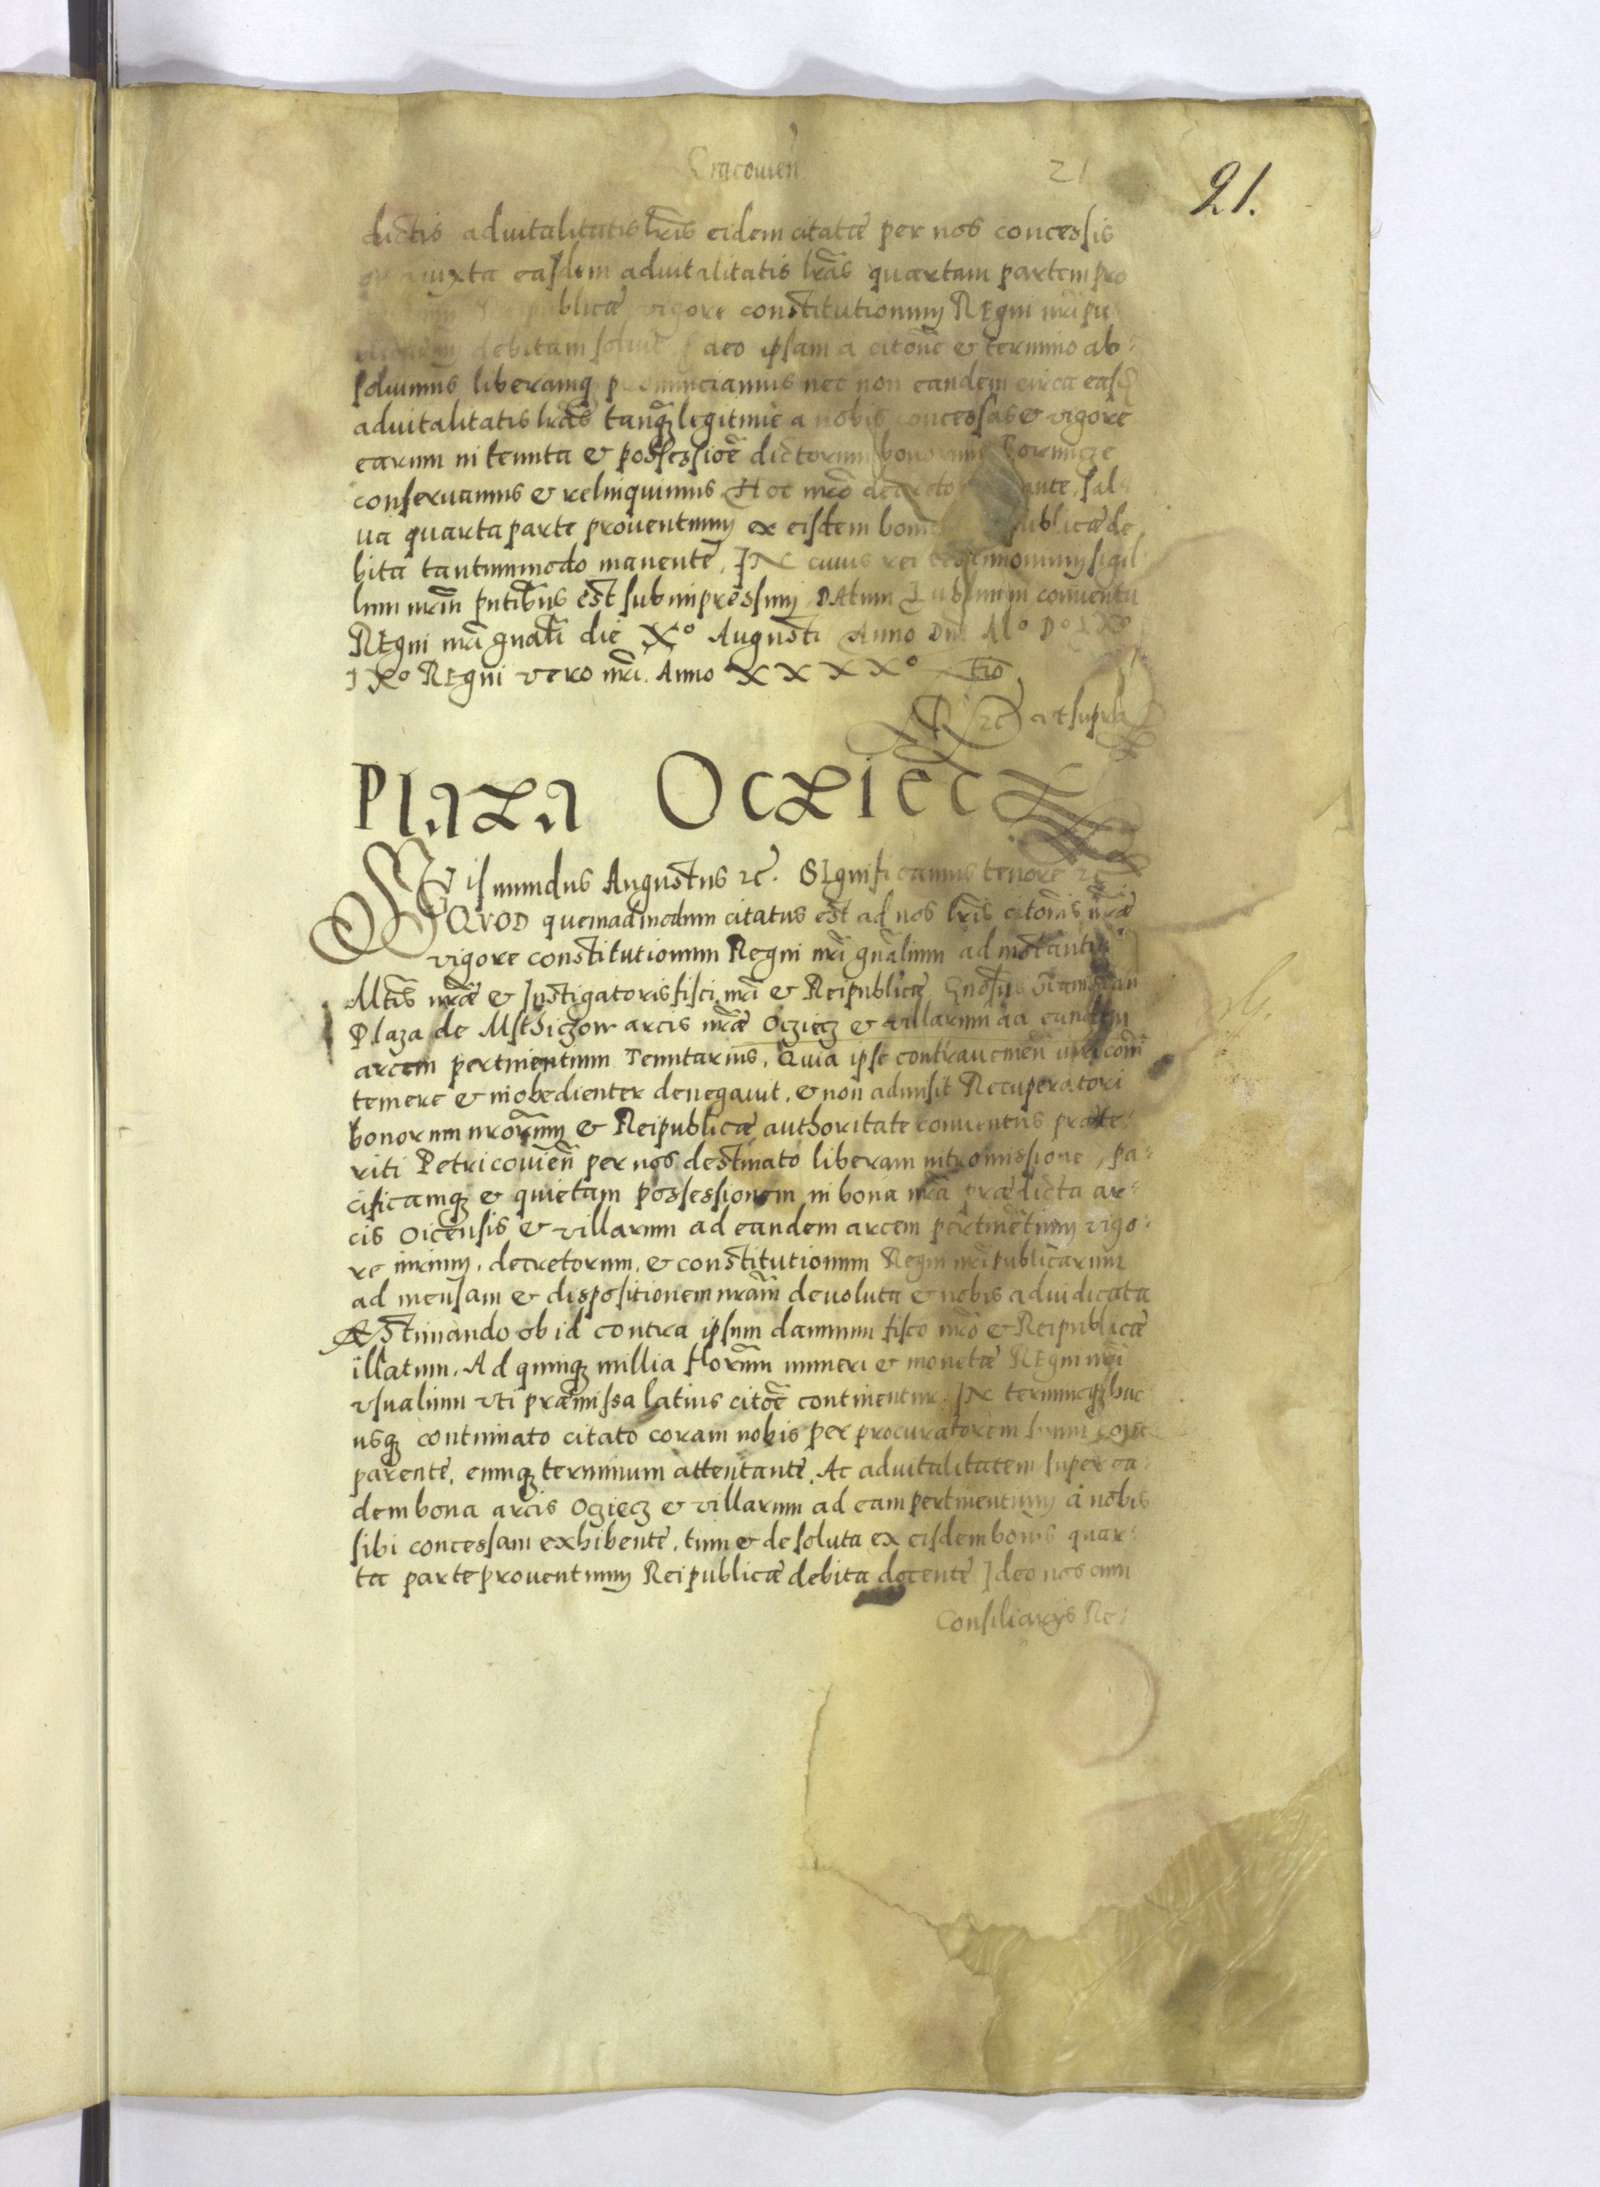 Cracouien̄
21
21.
dictis aduitalitatis lr̄is eidem citatæ per nos concessis
iuxta easdem aduitalitatis lr̄as quartam partem pro
blicæ vigore constitutionum REgni nr̄i pu
debitam soluit aeo ipsam a citon̄e & termino ab:
soluimus liberamq₃ pronunciamus nec non eandem circa easd
aduitalitatis lr̄as tanq₃ legitime a nobis concessas & vigore
earum in tenuta & possessiōe dictorum bonorum
conseruamus & relinquimus Hoc nr̄o decreto ante, sal
ua quarta parte prouentuum ex eisdem bonis publicæ de
bita tantummodo manente, IN cuius rei testimonium sigil
lum nr̄m pn̄tibus est subimpressum DAtum Lublini in conuentu
REgni nr̄i gn̄ali die Xº Augusti Anno Dn̄i Mº Dº LXº
IXº REgni vero nr̄i Anno XXXXº
ut supra
PlAZA OCZIECZ
Sigismundus Augustus ꝛc. SIgnificamus tenore ꝛc
QVOD quemadmodum citatus est ad nos lr̄is citon̄is nr̄æ
vigore constitutionum Regni nr̄i gn̄alium ad instantiā
Mtis nr̄æ & Instigatoris fisci nr̄i & Reipublicæ Gn̄osus
Plaza de Msthiczow arcis nr̄æ Oczięcz & villarum ad eandem
arcem pertinentium Tenutarius, Quia ipse contraueniēn
temere & inobedienter denegauit, & non admisit Recuperatori
bonorum nr̄orum & Reipublicæ authoritate conuentus præte:
riti Petricouien̄ per nos destinato liberam intromissionē, pa:
cificamq₃ & quietam possessionem in bona nr̄a prædicta ar:
cis Oicensis & villarum ad eandem arcem pertinētium vigo:
re iurium, decretorum, & constitutionum Regni nr̄i publicarum
ad mensam & dispositionem nr̄am deuoluta & nobis adiudicata
Æstimando ob id contra ipsum damnum fisco nr̄o & Reipublicæ
illatum, Ad quinq₃ millia florenum numeri & monetæ REgni nr̄i
vsualium vti præmissa latius citōe continentur. IN terminoq₃ huc
usq₃ continuato citato coram nobis per procuratorem suum com
parente, eumq₃ terminum attentante, Ac aduitalitatem super ea:
dem bona arcis Oczięcz & villarum ad eam pertinentium a nobis
sibi concessam exhibente, tum & de soluta ex eisdem bonis quar:
ta parte prouentuum Reipublicæ debita docente Ideo nos cum
Consiliarijs Re: